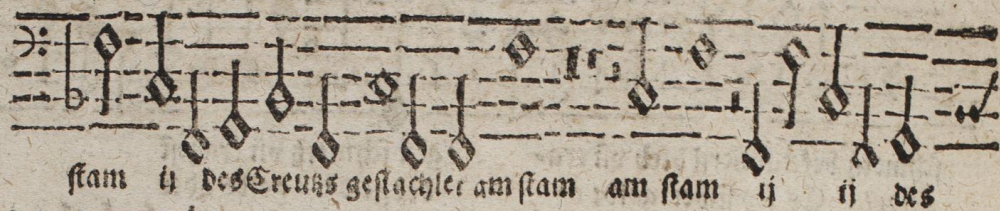 ſtam ij des Creutzs geſlachtet am ſtam am ſtam ij ij des